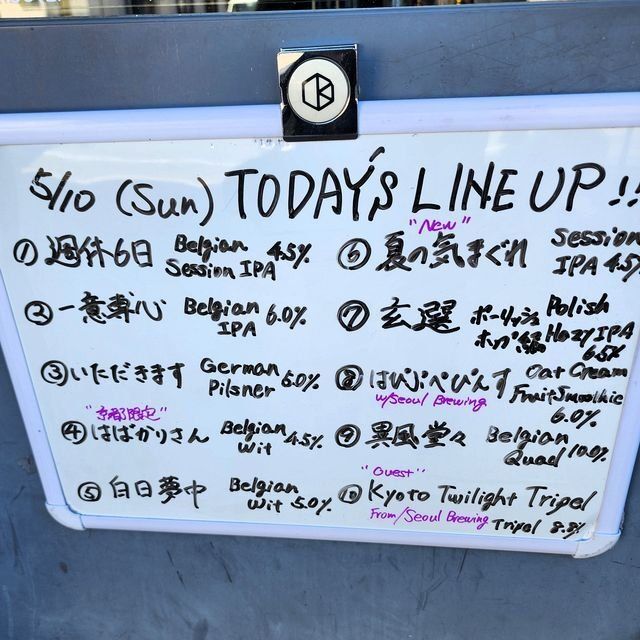 5/10 (Sun) TODAY'S LINE UP!!
① 週休6日 Belgian Session IPA 4.5%
② 一意専心 Belgian IPA 6.0%
③ いただきます German Pilsner 5.0%
"京都限定"
④ はばかりさん Belgian Wit 4.5%
⑤ 白日夢中 Belgian Wit 5.0%
"New"
⑥ 夏の気まぐれ Session IPA 4.5%
⑦ 玄選 ポーリッシュホップ Polish Hazy IPA 6.5%
⑧ はぴぷぺぴんす Oat Cream Fruit Smoothie 6.0%
w/Seoul Brewing
⑨ 異風堂々 Belgian Quad 10.0%
"Guest"
⑩ Kyoto Twilight Tripel
From/Seoul Brewing Tripel 8.8%